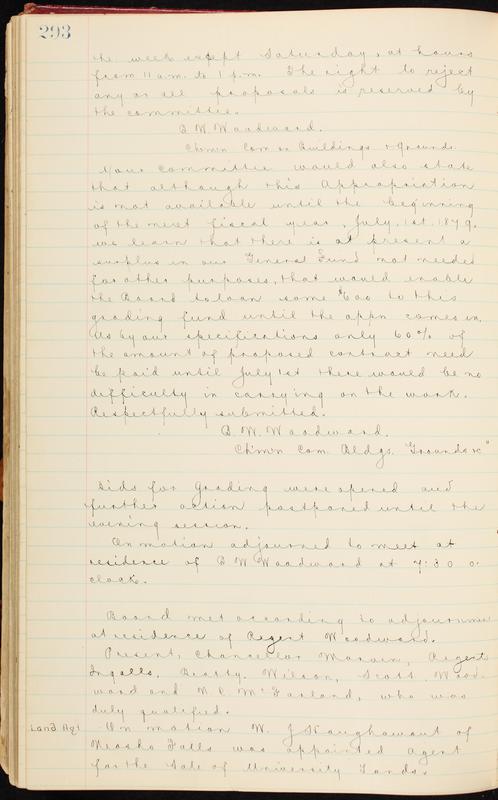 293
the week except Saturday, at hours
from 11 a.m. to 1 p.m. The right to reject
any or all proposals is reserved by
the committee.
B. W. Woodward.
Chmn Com on Buildings & Grounds.
Your Committee would also state
that although this Appropriation
is not available until the beginning
of the next fiscal year, July, 1st, 1879,
we learn that there is at present a
surplus in our General Fund not needed
for other purposes, that would enable
the Board to loan some $600 to this
grading fund until the appn comes in.
As by our specifications only 60% of
the amount of proposed contract need
be paid until July 1st there would be no
difficulty in carrying on the work.
Respectfully submitted.
B. W. Woodward.
Chmn Com. Bldgs. Grounds &c"
Bids for Grading were opened and
further action postponed until the
evening session.
On motion adjourned to meet at
residence of B W Woodward at 7:30 o.
clock.
Board met according to adjournment
at residence of Regent Woodward.
Present, Chancellor Marvin, Regents
Ingalls, Beatty, Wilson, Scott, Wood-
ward and N. C. McFarland, who was
duly qualified.
Land Agt
On motion W. J Haughawout of
Neosho Falls was appointed Agent
for the Sale of University Lands.